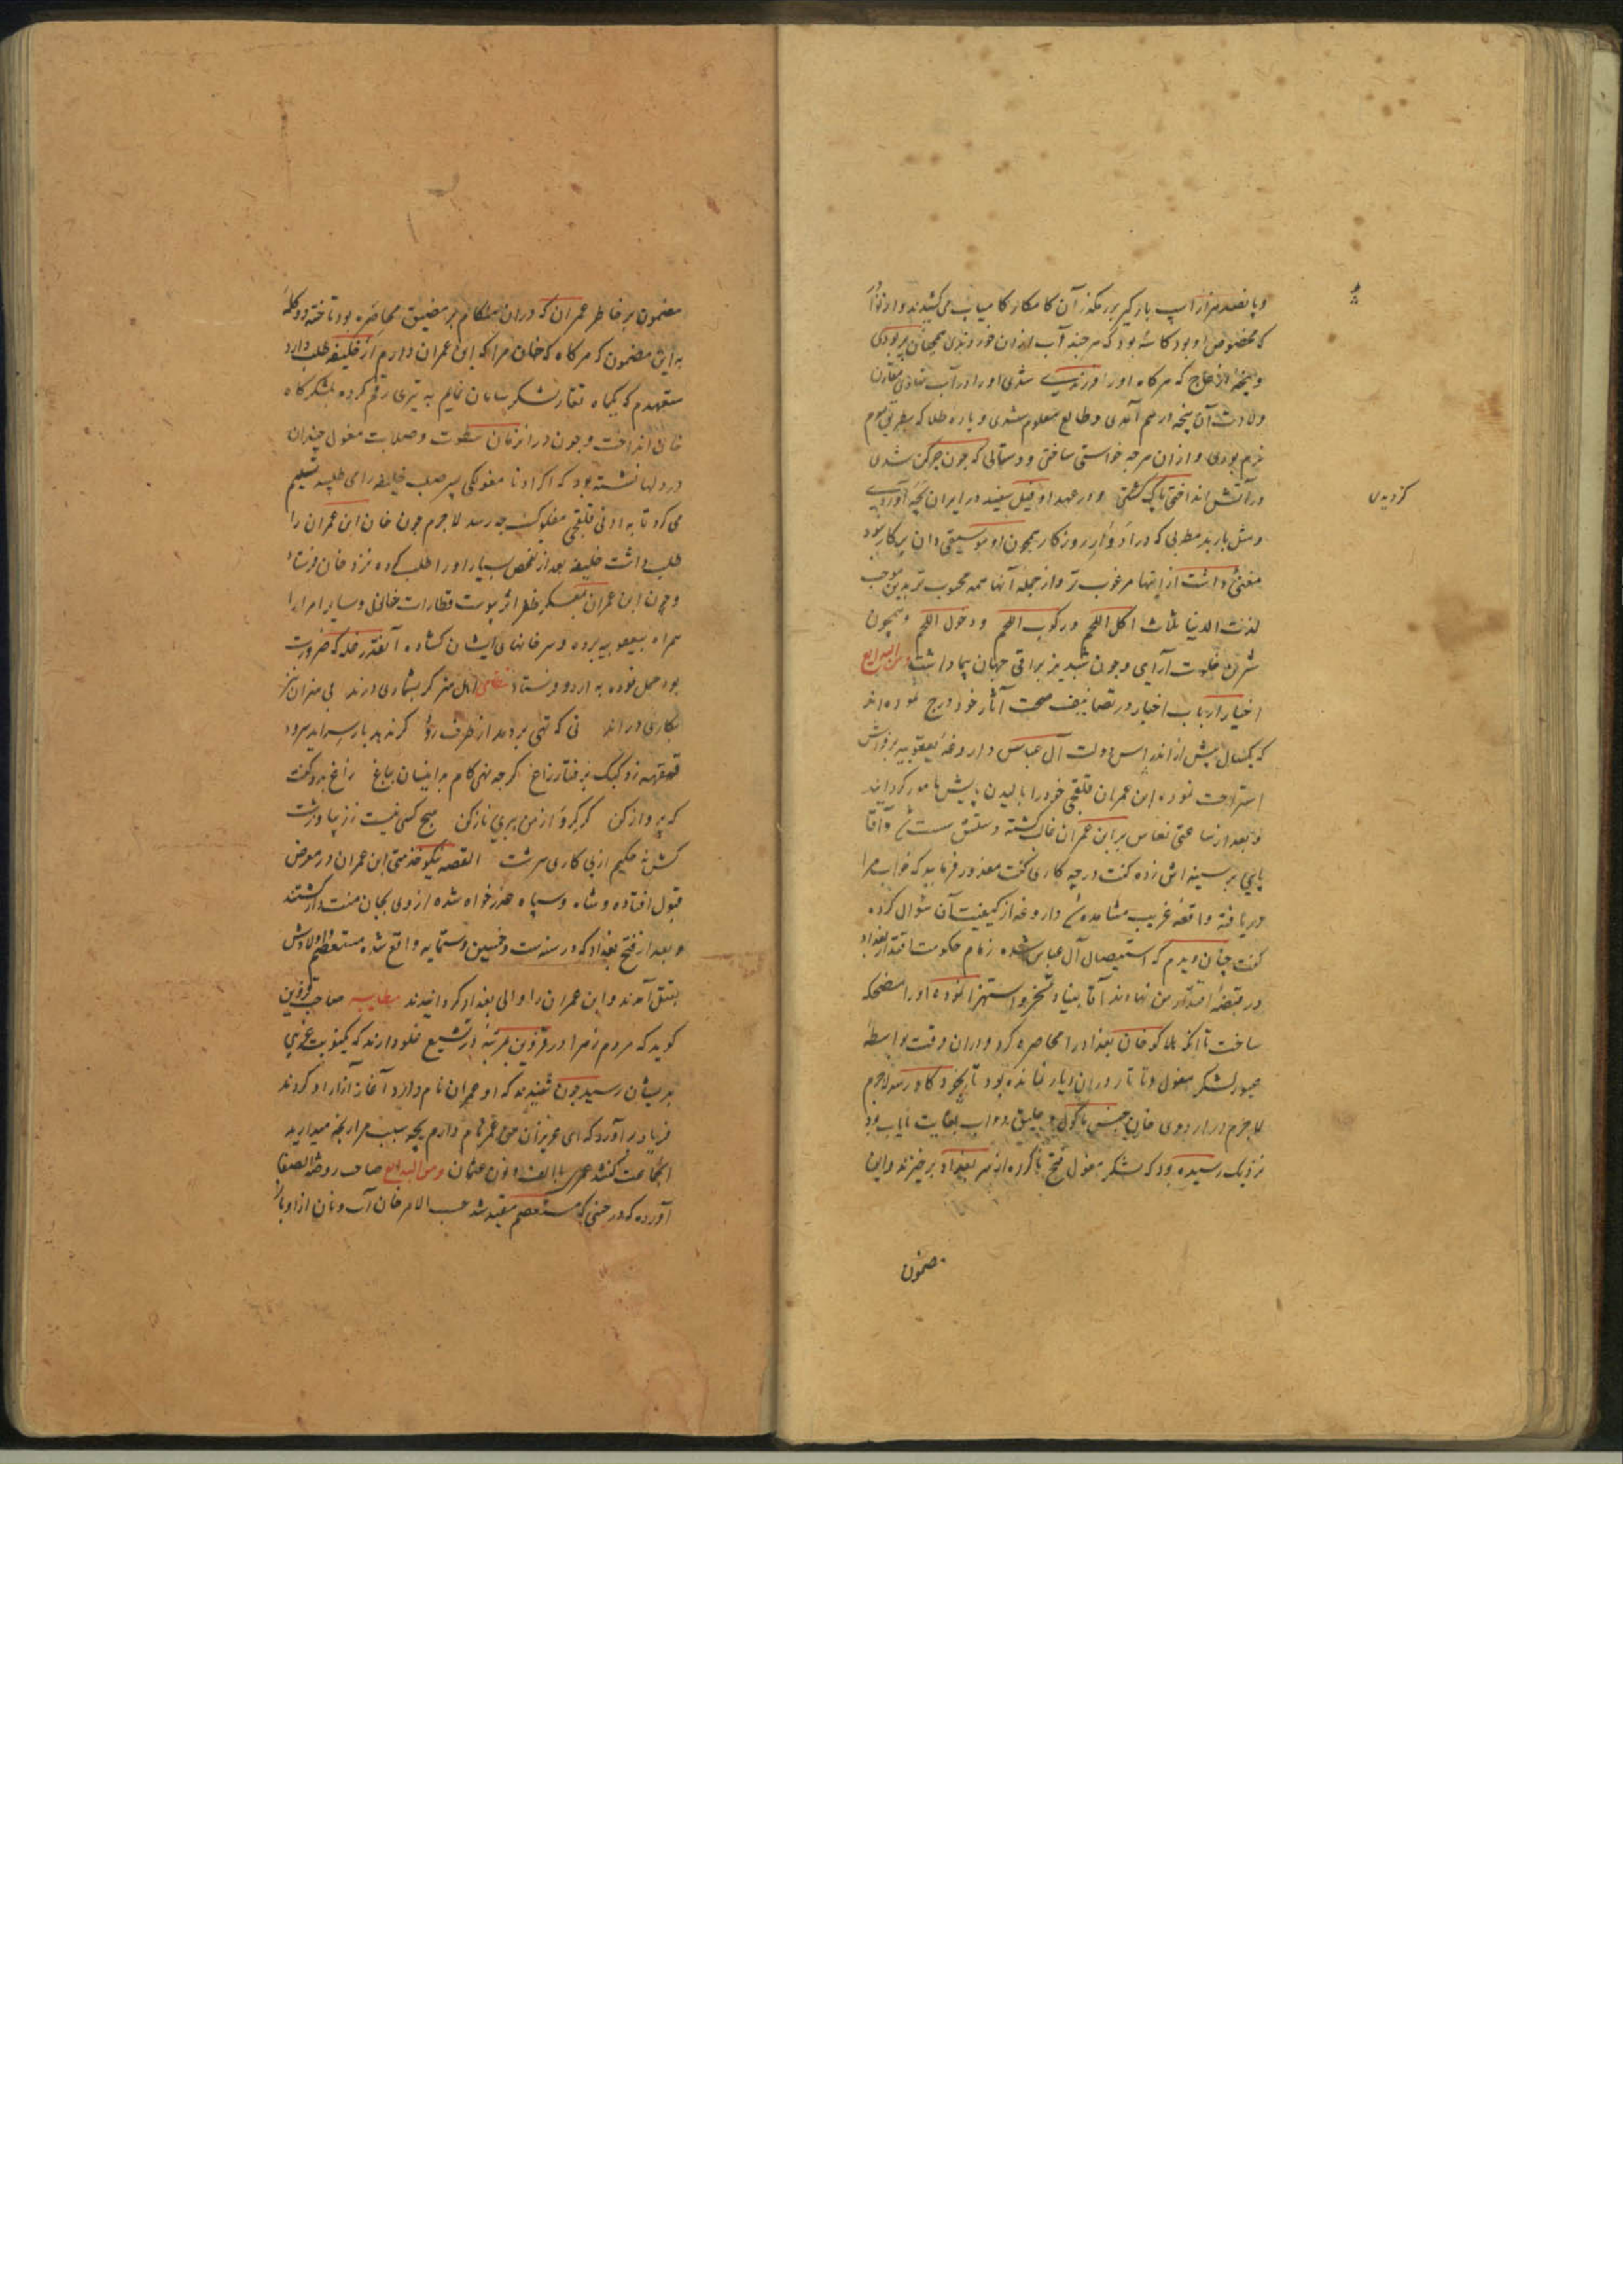 و پانصد هزار اسپ بارگیر بر رهگذر آن کامکار کامیاب می کشیدند و از نوادر
که مخصوص او بود کاسهٔ بود که هر چند آب ازان خوردندی همچنان پر بودی
و پنجه از عاج که هر گاه او را فرزندی شدی او را در آب نهادی مقارن
ولادت آن پنجه در هم آمدی و طالع معلوم شدی و پاره طلا که بطریق موم
نرم بودی و ازان هرچه خواستی ساختی و دستاری که چون چرکن شدی
در آتش انداختی پاک گشتی و در عهد او فیل سفید در ایران بچه آوردی
گردیدی
و مثل باربد مطربی که در ادوار روزگار همچون او موسیقی دان پرکار نبود
مغنی داشت از اینها مرغوب تر و از جمله آنها همه محبوب تر بدین موجب
لذت الدنیا ثلاث اکل اللحم و رکوب اللحم و دخول اللحم و همچون
شیرین خلوت آرای و چون شبدیز براقی جهان پیما داشت ومن البدایع
اخیار ارباب اخبار در تصانیف صحت آثار خود درج نموده اند
که یکسال پیش از اندراس دولت آل عباس داروغهٔ یعقوبیه بر فراش
استراحت غنوده ابن عمران قلقچی خود را بمالیدن پایش مامور گردانید
و بعد از ساعتی نعاس بر ابن عمران غالب گشته دستش سست شد آقا
پایی بر سینه اش زده گفت در چه کاری گفت معذور فرمایید که خواب مرا
دریافته واقعهٔ غریب مشاهده شد داروغه از کیفیت آن سوال کرده
گفت چنان دیدم که استیصال آل عباس شده زمام حکومت و اقتدار بغداد
در قبضهٔ اقتدار من نهادند آقا بنیاد تسخر و استهزا نموده او را مضحکه
ساخت تا آنکه هلاکو خان بغداد را محاصره کرد و دران وقت بواسطهٔ
عبور لشکر مغول و تاتار دران دیار نمانده بود تا بخود کاو رسد لاجرم
لاجرم در اردوی خانی جنس ماکول و علیق دواب بغایت نایاب بود
نزدیک رسیده بود که لشکر مغول فتح ناکرده از سر بغداد برخیزند و این
مضمون
مضمون بر خاطر عمران که دران هنگام در مضیق محاصره بود تاخته دو کلمه
به این مضمون که هر گاه که خان مرا که ابن عمران دارم از خلیفه طلب دارد
متعهدم که یکماه تغار لشکر سامان نمایم به تیری رقم کرده بلشکرگاه
خان انداخت و چون در انزمان سطوت و صلابت مغول چندان
در دلها نشسته بود که اگر ادنا مغولکی پسر صلب خلیفه را می طلبید تسلیم
می کرد تا به ادنی قلقچی مفلوک چه رسد لاجرم چون خان ابن عمران را
طلب داشت خلیفه بعد از تفحص بسیار او را طلب کرده نزد خان فرستاد
و چون ابن عمران بمعسکر ظفر اثر پیوست قطارات خانی و سایر امرا را
همراه به یعقوبیه برده و سر خانهای ایشان گشاده آنقدر غله که ضرورت
بود حمل نموده به اردو فرستاد نظم اهل هنر گر بشماری درند بی هنران نیز
بکاری دراند نی که تهی بر دمد از طرف رود گر ندید بار سراید سرود
قهقهه زد کبک بر رفتار زاغ گرچه نهی گام بر اینسان بباغ زاغ بدو گفت
که پرواز کن گر گرو از من ببری ناز کن هیچ کسی نیست ز زیبا و زشت
کش نه حکیم از پی کاری سرشت القصه نیکو خدمتی ابن عمران در معرض
قبول افتاده و شاه و سپاه عذر خواه شده از وی بجان منت دار گشتند
و بعد از فتح بغداد که در سنه ست و خمسین و ستمایه واقع شد مستعصم و اولادش
بقتل آمدند و ابن عمران را والی بغداد گردانیدند مطایبه صاحب قزوین
گوید که مردم زهرا در قزوین بمرتبهٔ در تشیع غلو دارند که یکنوبت غریبی
بدیشان رسید چون شنیدند که او عمران نام دارد آغاز آزار او کردند
فریاد بر آورد که ای عزیزان من عمر نام ندارم بچه سبب مرا رنجه میدارید
انجماعت گفتند عمر با الف و نون عثمان ومن البدایع صاحب روضة الصفا
آورده که در حینی که مستعصم مقید شد حسب الامر خان آب و نان از او باز